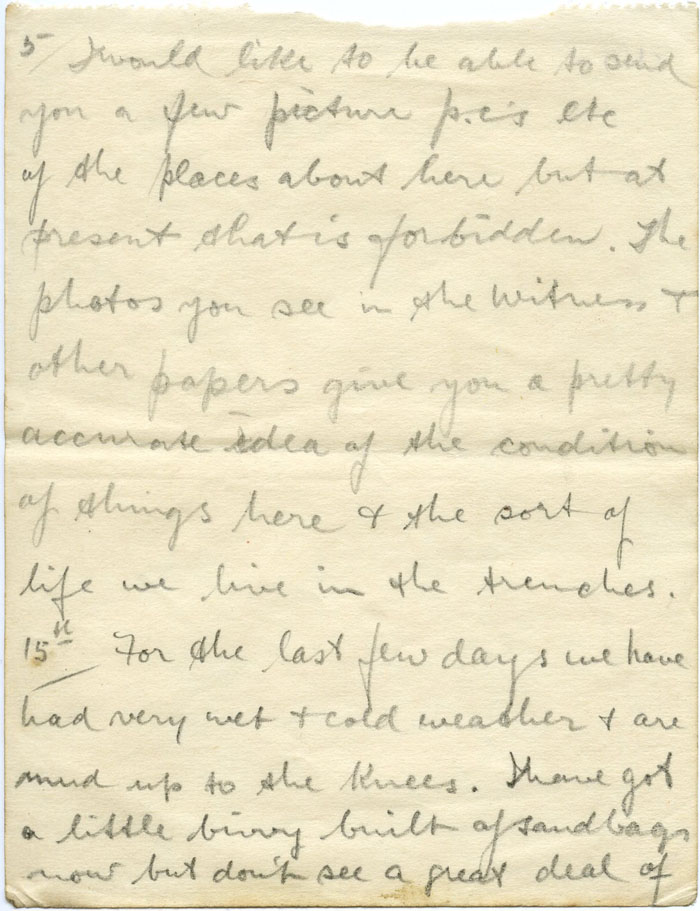 5/ I would like to be able to send
you a few picture p.c's etc
of the places about here but at
present that is forbidden. The
photos you see in the Witness &
other papers give you a pretty
accurate idea of the condition
of things here & the sort of
life we live in the trenches.
15th For the last few days we have
had very wet & cold weather & are
mud up to the knees. I have got
a little bivvy built of sandbags
now but don't see a great deal of